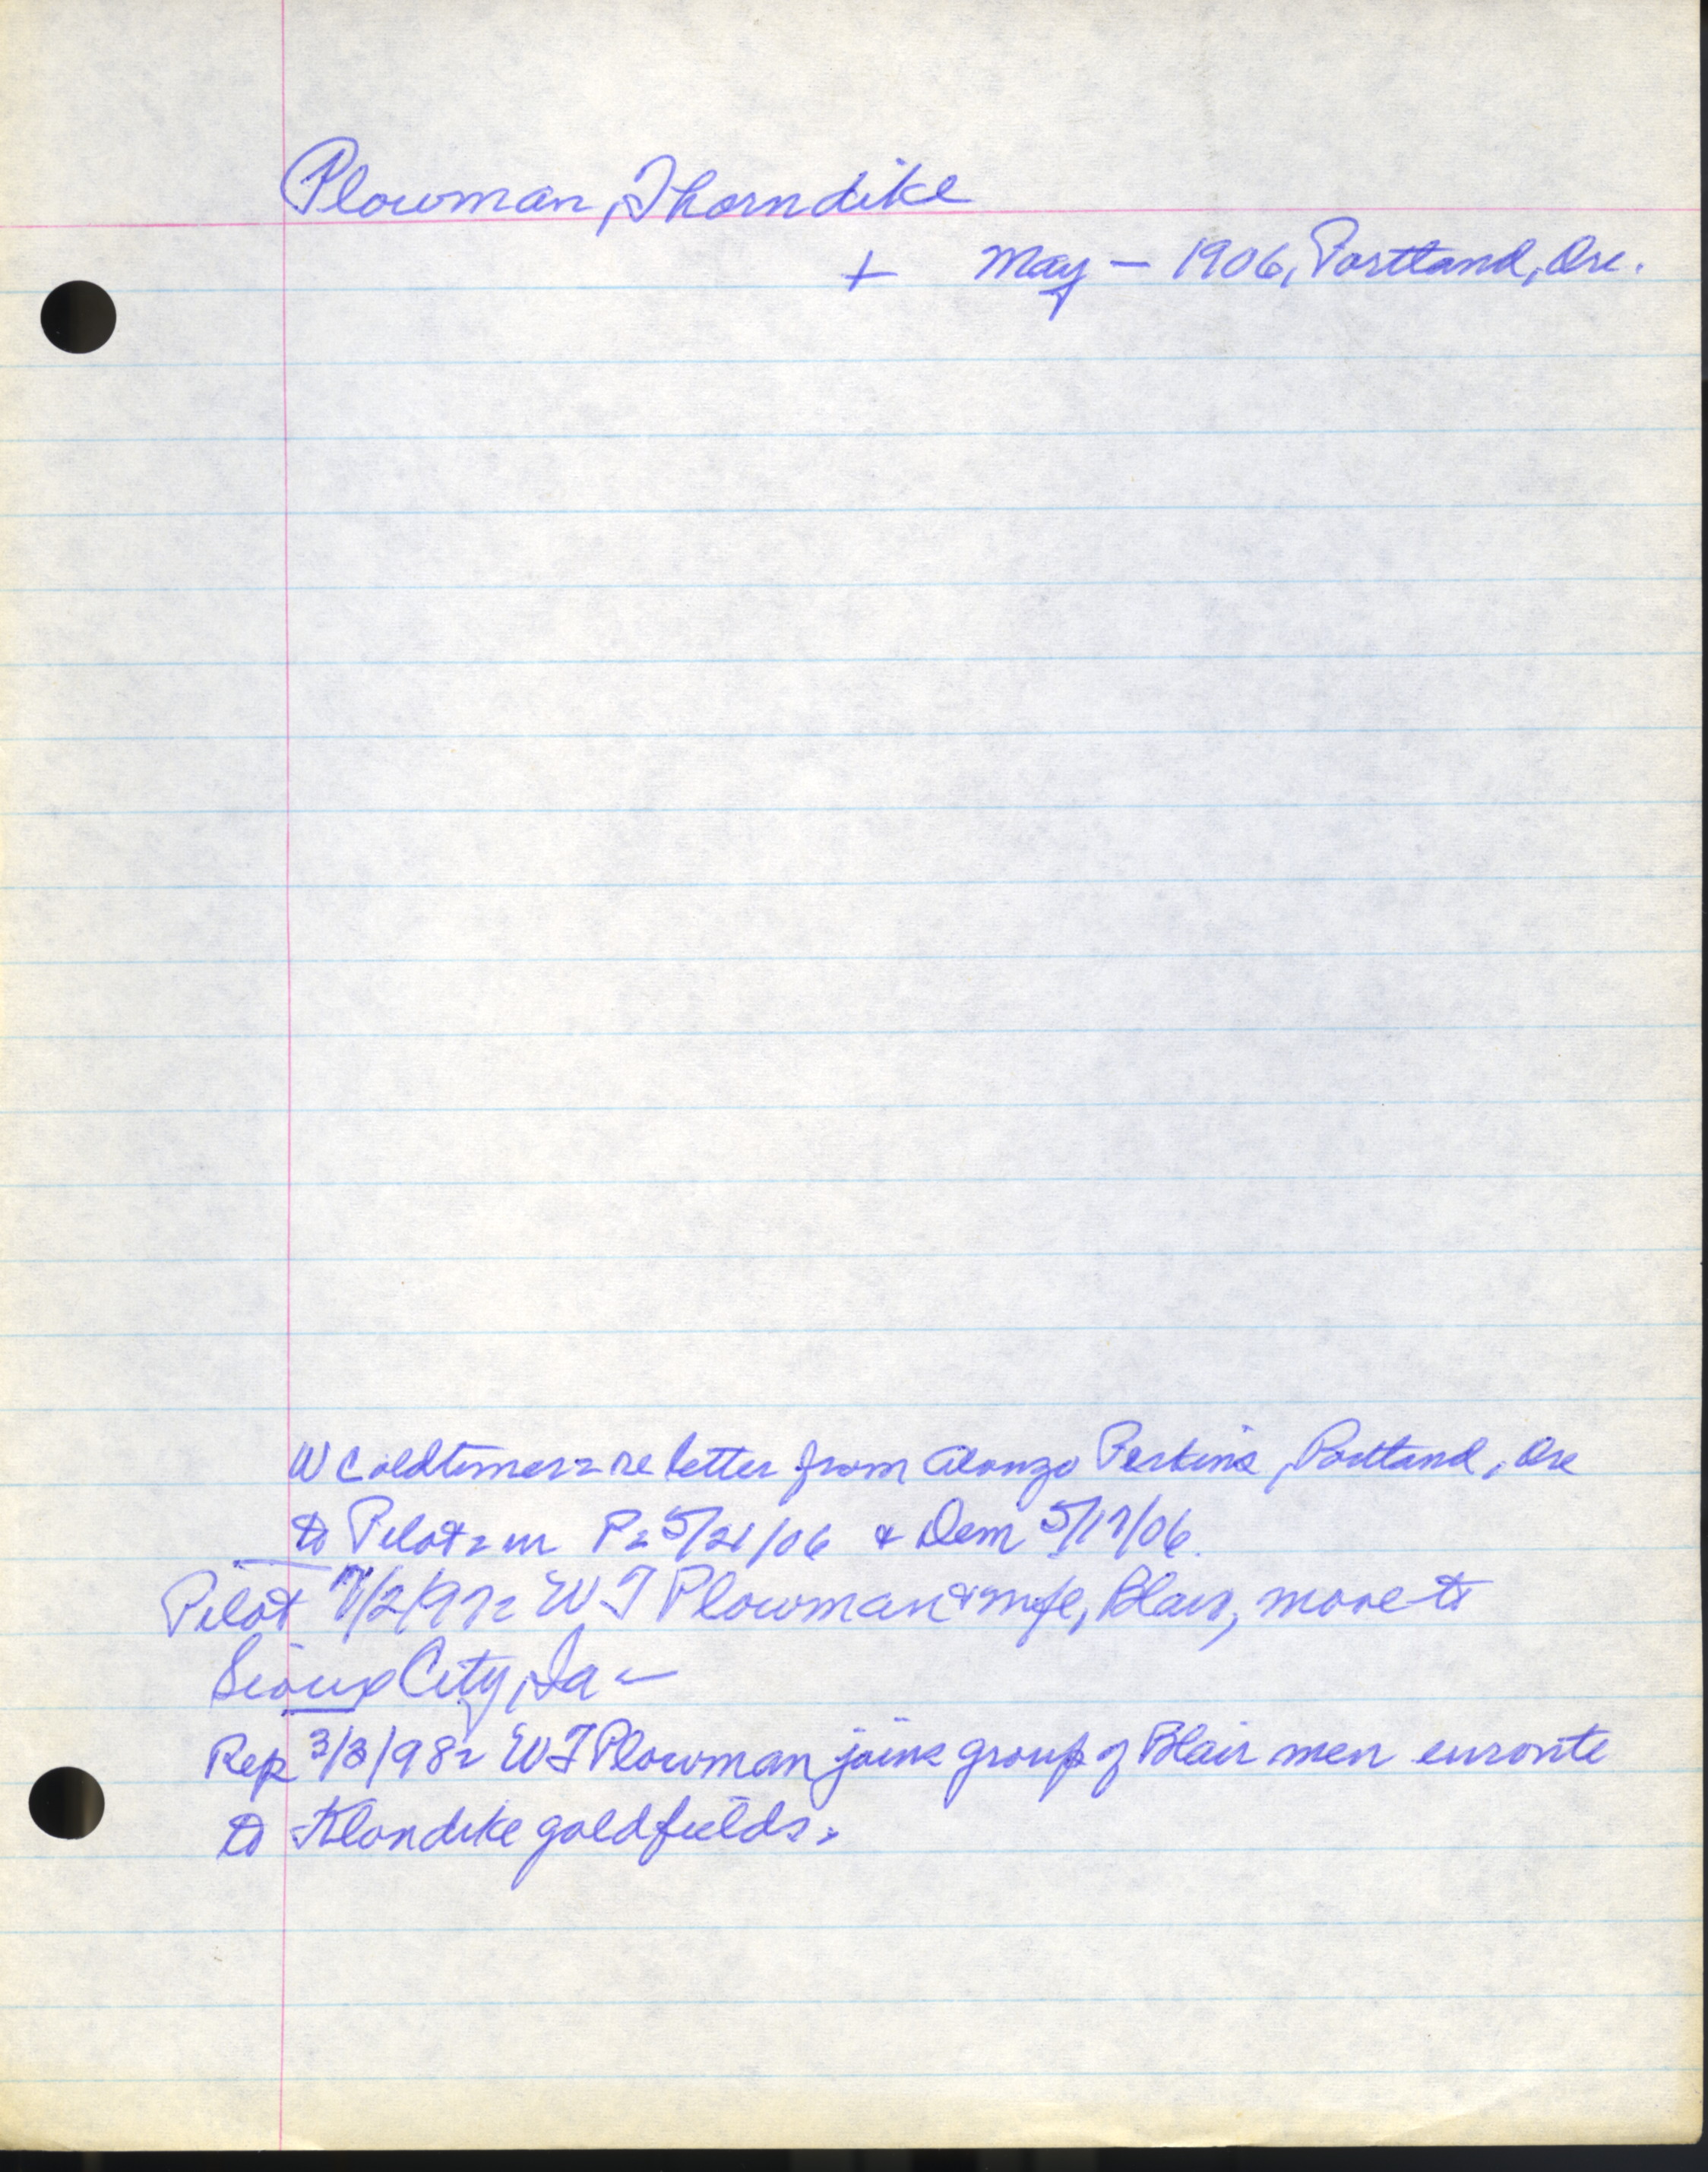 Plowman, Thorndike
+ May – 1906, Portland, Ore.
W C oldtimer = re letter from Alonzo Perkins, Portland, Ore
to Pilot = in P = 5/21/06 & Dem 5/17/06.
Pilot 7/2/97 = W T Plowman & wife, Blair, move to
Sioux City, Ia –
Rep 3/3/98 = W T Plowman joins group of Blair men enroute
to Klondike goldfields.